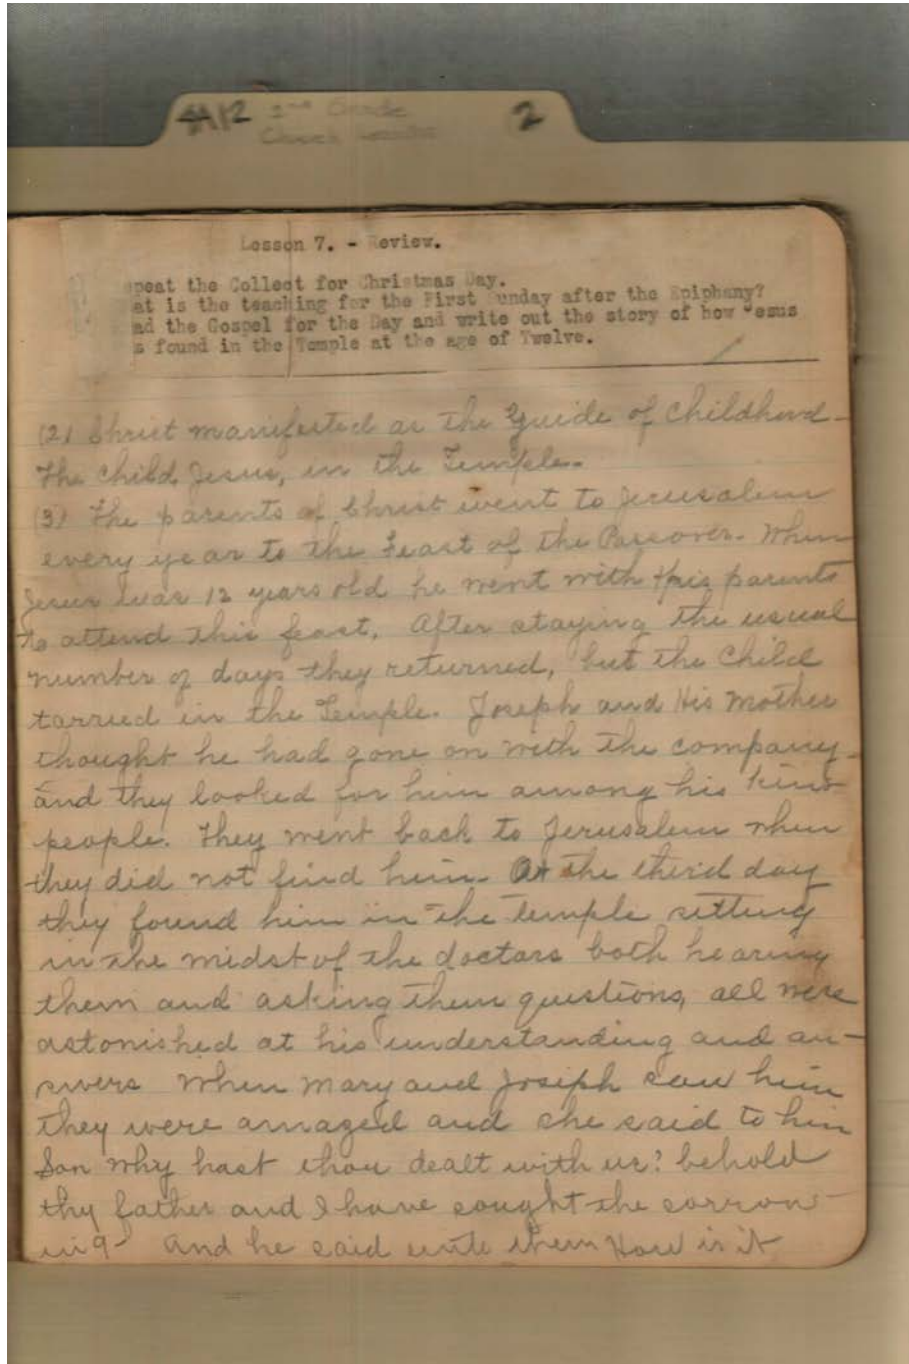 #12 2nd Grade 2
Church
Lesson 7. - eview.
epeat the Collect for Christmas Day.
at is the teaching for the First unday after the Epiphany?
ad the Gospel for the Day and write out the story of how Jesus
s found in the Temple at the age of Twelve.
(2) Christ manifested as the Guide of Childhood-
The Child Jesus, in the Temple.
(3) The parents of Christ went to Jerusalem
every year to the Feast of the Passover. When
Jesus was 12 years old he went with His parents
to attend this feast. After staying the usual
number of days they returned, but the Child
tarried in the Temple. Joseph and His Mother
thought he had gone on with the company-
and they looked for him among his kins
people. They went back to Jerusalem when
they did not find him. the third day
they found him in the temple sitting
in the midst of the doctors both hearing
them and asking them questions, all were
astonished at his understanding and an-
swers When Mary and Joseph saw him
they were amazed and she said to him
Son why hast thou dealt with us? behold
thy father and I have sought the sorrow-
ing- And he said unto them How is it